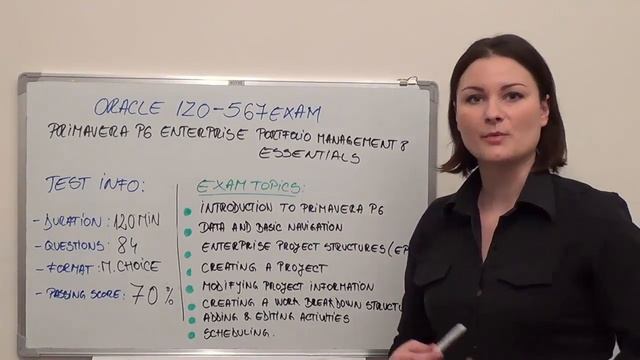 ORACLE 1Z0-567 EXAM
PRIMAVERA P6 ENTERPRISE PORTFOLIO MANAGEMENT 8
ESSENTIALS
TEST INFO:
- DURATION: 120 MIN
- QUESTIONS: 84
- FORMAT: M. CHOICE
- PASSING SCORE: 70%
EXAM TOPICS:
INTRODUCTION TO PRIMAVERA P6
DATA AND BASIC NAVIGATION
ENTERPRISE PROJECT STRUCTURES (EP
CREATING A PROJECT
MODIFYING PROJECT INFORMATION
CREATING A WORK BREAKDOWN STRUCTU
ADDING & EDITING ACTIVITIES
SCHEDULING.